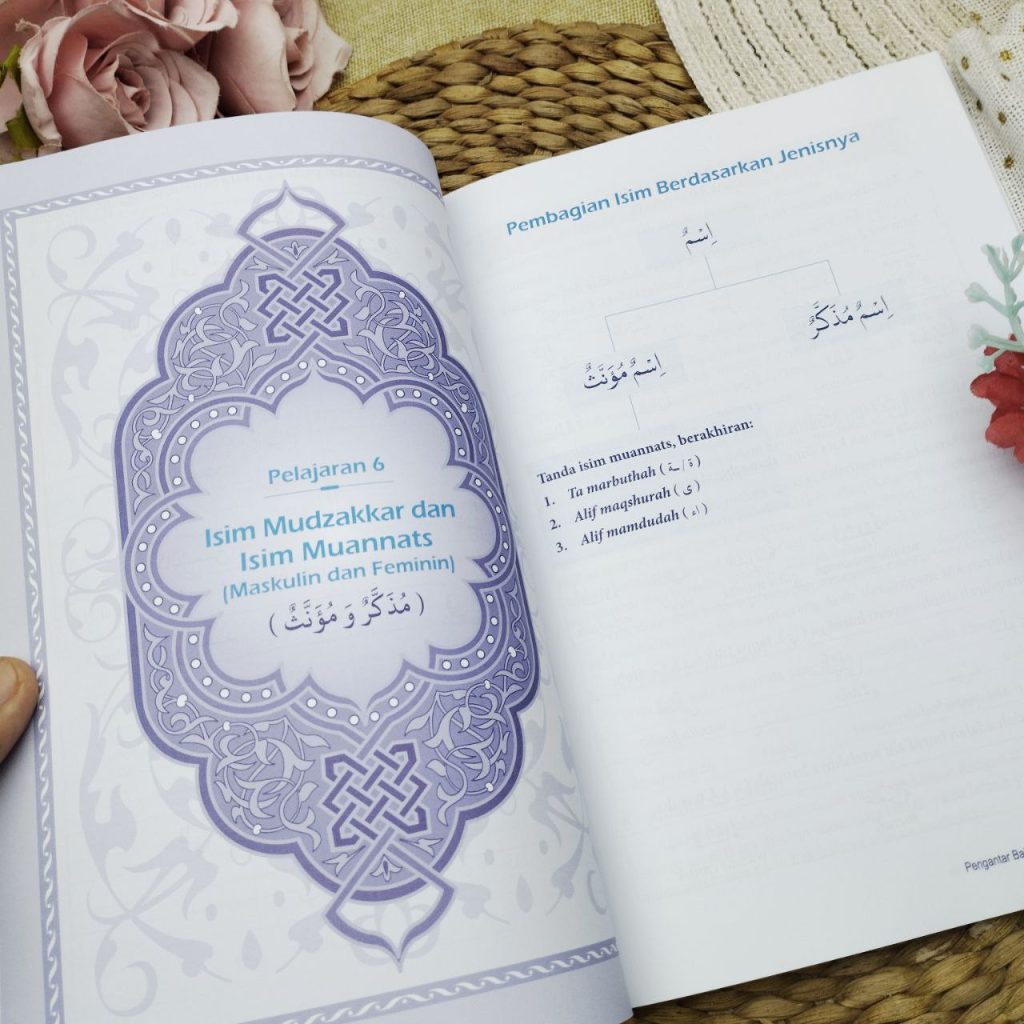 Pelajaran 6
Isim Mudzakkar dan
Isim Muannats
(Maskulin dan Feminin)
( مُذَكَّرٌ وَ مُؤَنَّثٌ )
Pembagian Isim Berdasarkan Jenisnya
اِسْمٌ
اِسْمٌ مُذَكَّرٌ
اِسْمٌ مُؤَنَّثٌ
Tanda isim muannats, berakhiran:
1. Ta marbuthah ( ة / ـة )
2. Alif maqshurah ( ى )
3. Alif mamdudah ( اء )
Pengantar